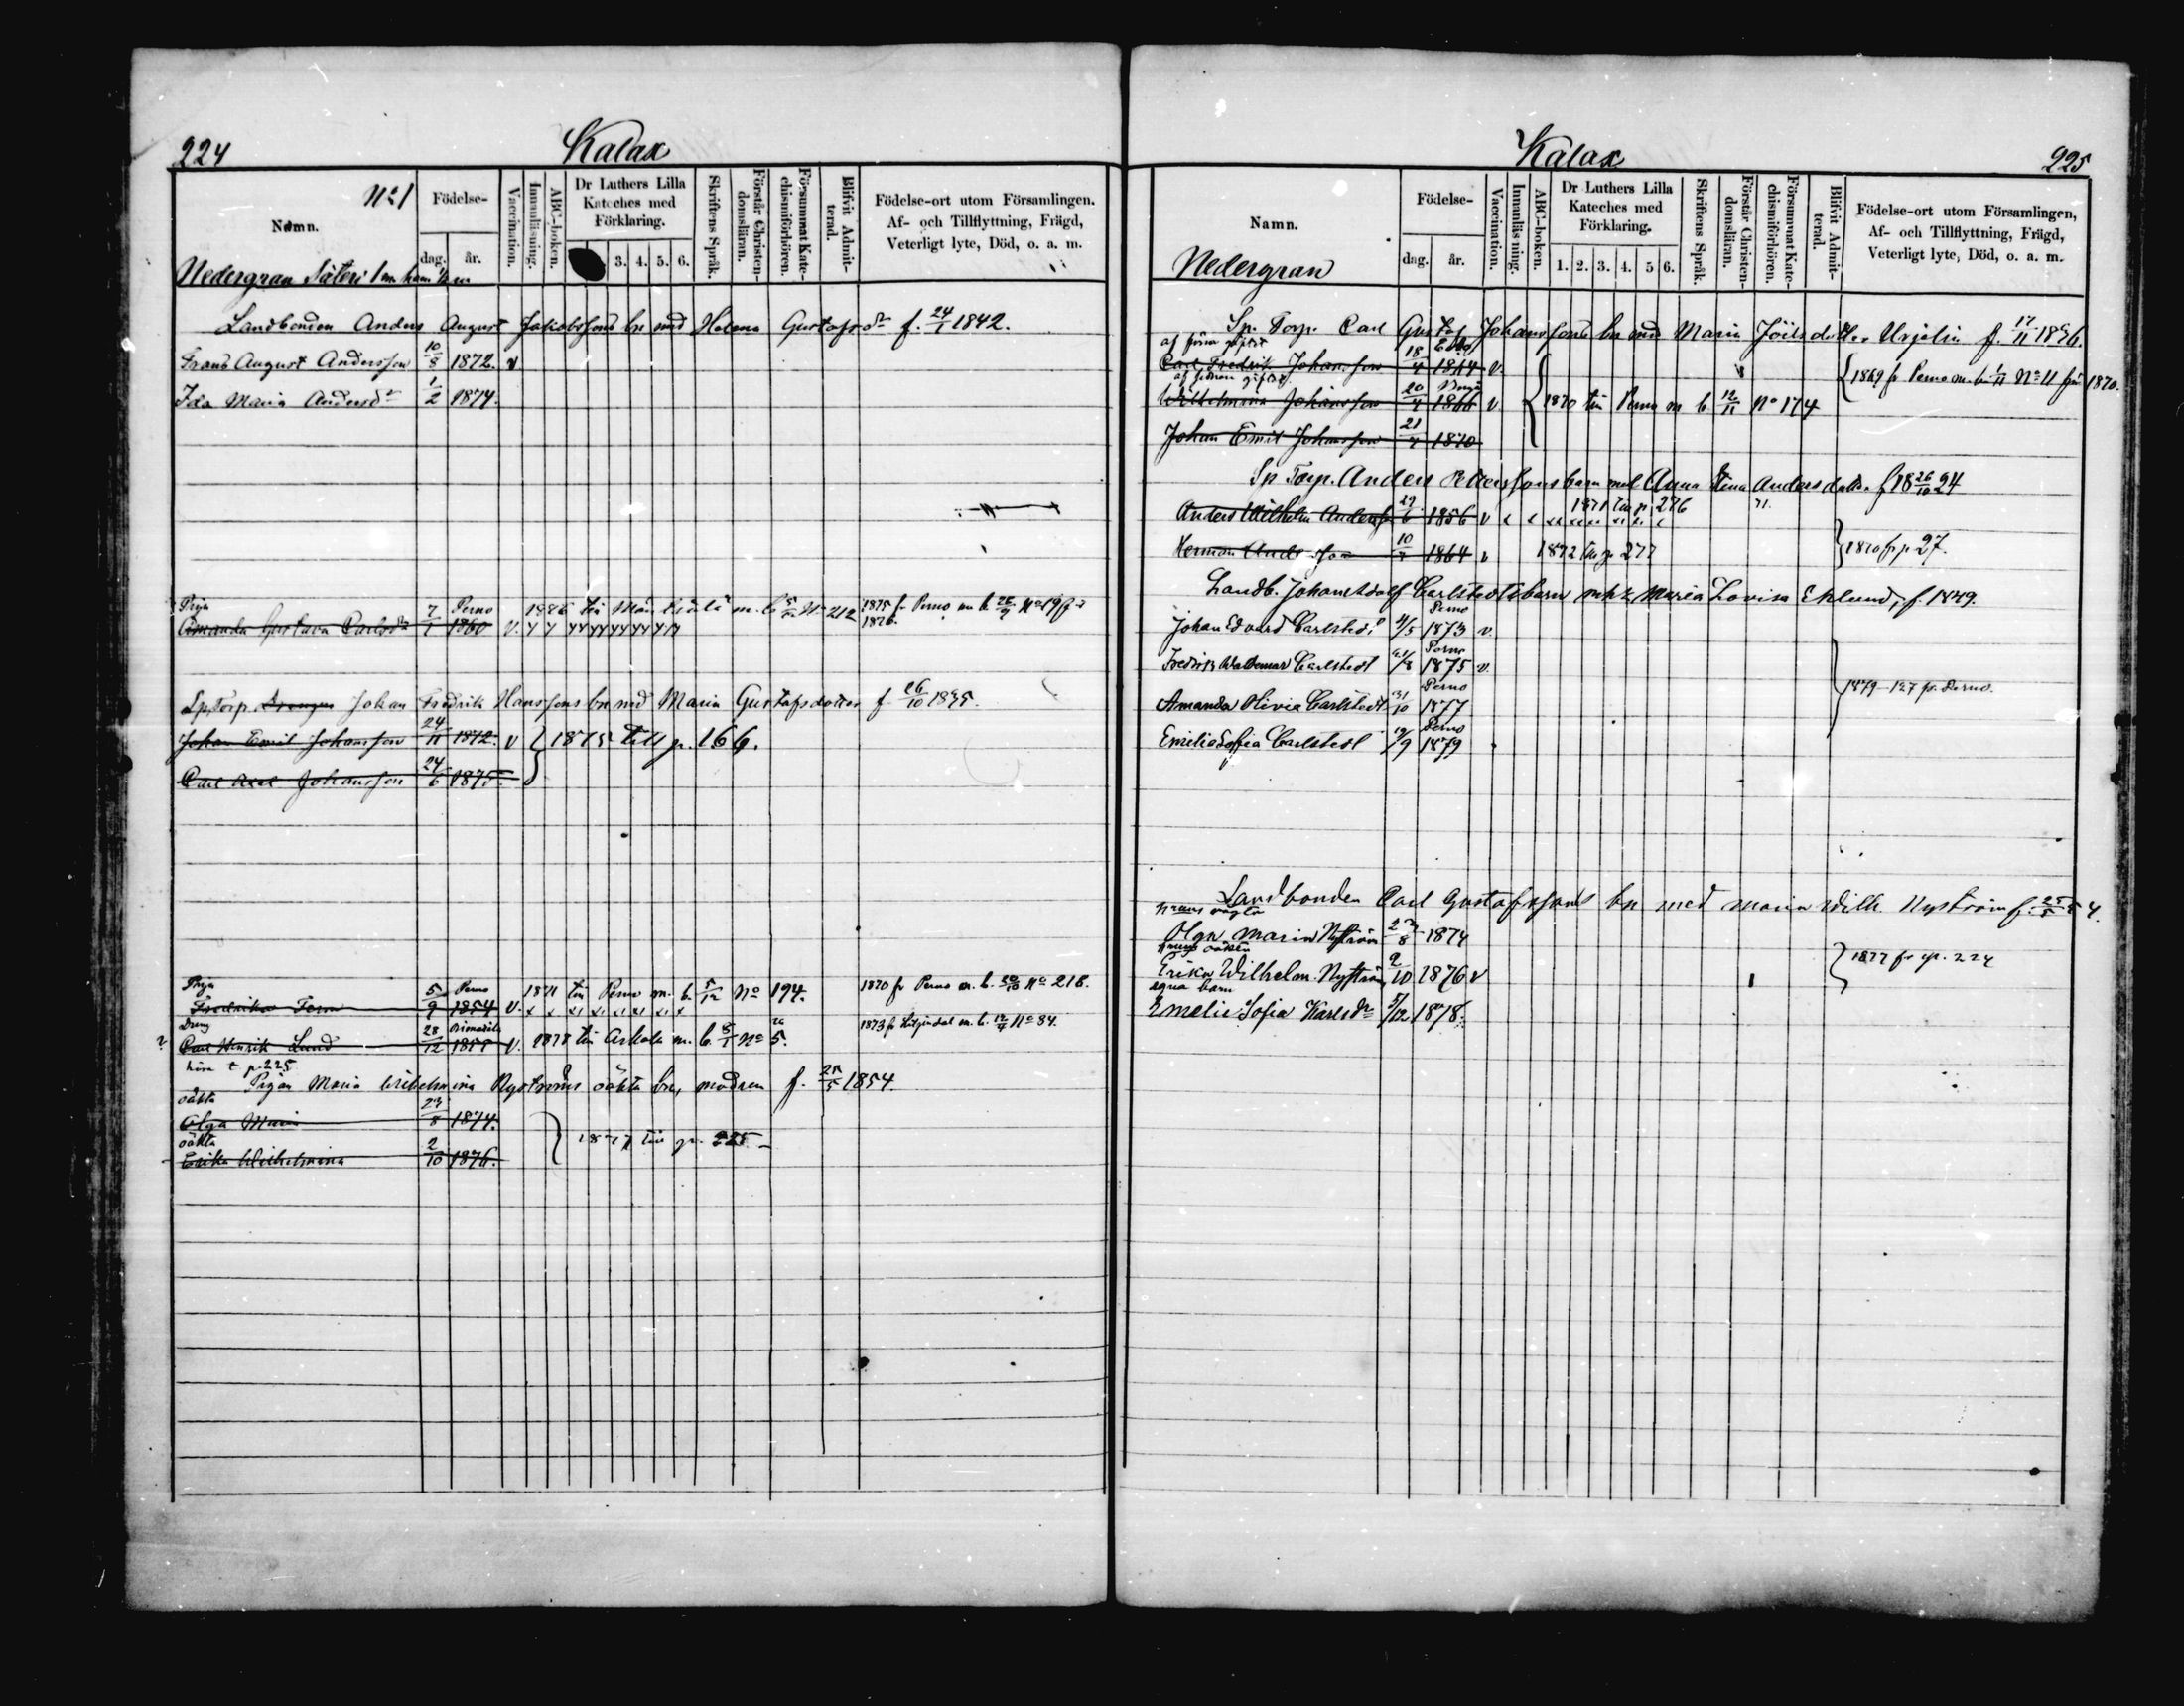 224
Kalax
No 1
Namn.
Födelse-
dag.
år.
Vaccination.
Innanläsning.
ABC-boken.
Dr Luthers Lilla
Kateches med
Förklaring.
3. 4. 5. 6.
Skriftens Språk.
Förstår Christen-
domsläran.
Försummat Kate-
chismiförhören.
Blifvit Admit-
terad.
Födelse-ort utom Församlingen.
Af- och Tillflyttning, Frägd,
Veterligt lyte, Död, o. a. m.
Nedergran Säteri 1 mt
Landbonden Anders August Jakobssons bn med Helena Gustafsdr f. 24/1 1842.
Frans August Andersson 10/8 1872. v
Ida Maria Andersdr 1/2 1874.
Piga Perno 1886 till m. b. No 212 1875 fr Perno m. b. No 197
Amanda Gustava Carlsdr 7/1 1860 v. 1876.
Sp. Torp. Drengen Johan Fredrik Hanssons bn med Maria Gustafsdotter f 26/10 1835.
Johan Emil Johansson 24/11 1872. v } 1875 till p. 166.
Carl Axel Johansson 24/6 1875.
Piga Perno 1871 till Perno m. b. 5/12 No 194. 1870 fr Perno m. b. No 218.
Fredrika Fern 5/9 1854 v.
Dreng 1873 fr Liljendal m. b. No 84.
Carl Henrik Lund 28/12 1855 v. 1878 till Askola m. b. No 5.
t p. 225
Pigan Maria Wilhelmina Nyströms oäkta bn, modren f. 25/5 1854.
oäkta
Olga Maria 23/8 1874.
oäkta } 1877 till p. 225
Erika Wilhelmina 2/10 1876.
Kalax
225
Namn.
Födelse-
dag.
år.
Vaccination.
Innanläsning.
ABC-boken.
Dr Luthers Lilla
Kateches med
Förklaring.
1. 2. 3. 4. 5 6.
Skriftens Språk.
Förstår Christen-
domsläran.
Försummat Kate-
chismiförhören.
Blifvit Admit-
terad.
Födelse-ort utom Församlingen,
Af- och Tillflyttning, Frägd,
Veterligt lyte, Död, o. a. m.
Nedergran
Sp. Torp. Carl Gustaf Johanssons bn med Maria f. 17/11 1836.
af förra giftet
Carl Fredrik Johansson 18/4 1864 v.
af senare giftet { 1869 fr Perno m. b. No 11 1870.
Wilhelmina Johansson 20/4 1866 v { 1870 till Perno m b. 12/11 No 174
Johan Emil Johansson 21/4 1870
Sp Torp. Anders Petterssons barn med Anna Stina Andersdotter f 18 26/10 24
1871 till p 276
Anders Wilhelm Andersson 29/6 1856 v
Herman Andersson 10/7 1864 v 1872 till p 277 } 1870 fr p 27.
Landb. Johan Adolf Carlstedts barn mhk Maria Lovisa Eklund, f. 1849.
Perno
Johan Edvard Carlstedt 4/5 1873 v.
Perno
Fredrik Waldemar Carlstedt 21/8 1875 v.
Perno } 1879 127 fr. Perno.
Amanda Olivia Carlstedt 31/10 1877
Perno
Emelie Sofia Carlstedt 19/9 1879
Landbonden Carl Gustafssons bn med Maria Wilh. Nyström f. 25/5 54.
Olga Maria Nyström 23/8 1874
} 1877 fr p. 224
Erika Wilhelm. Nyström 2/10 1876 v
egna barn
Emelie Sofia Karlsdr 5/12 1878.